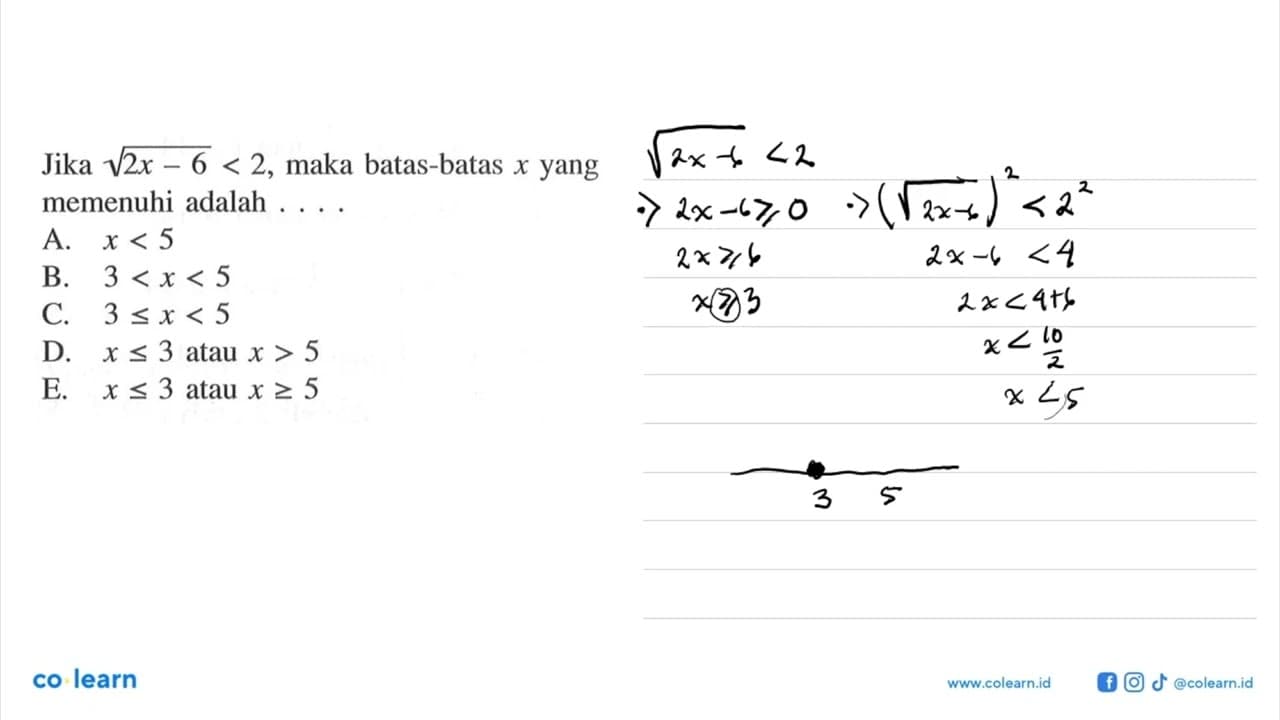 Jika √2x – 6 < 2, maka batas-batas x yang
memenuhi adalah . . . .
A. x < 5
B. 3 < x < 5
C. 3 ≤ x < 5
D. x ≤ 3 atau x > 5
E. x ≤ 3 atau x ≥ 5
√2x-6 < 2
•> 2x-6 ≥ 0 •> (√2x-6)² < 2²
2x ≥ 6 2x-6 < 4
x ≥ 3 2x < 4+6
x < 10/2
x < 5
3 5
co learn
www.colearn.id @colearn.id